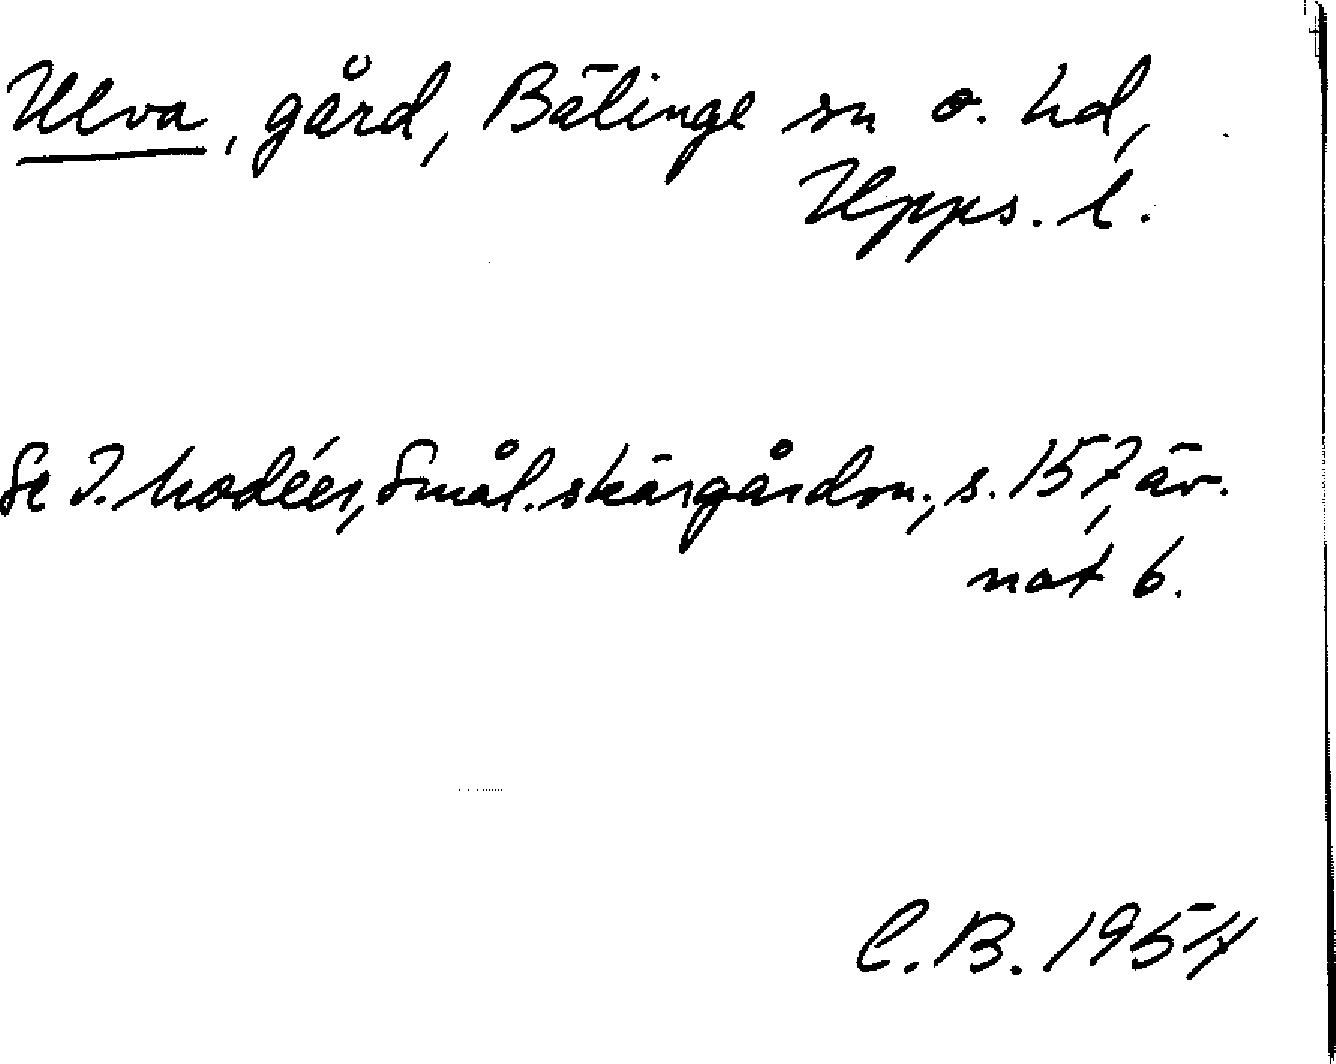 Ulva, gård, Bälinge sn o. hd,
Upps. l.
Se I. Modéer, Smål. skärgårdsn., s. 157, äv.
not 6.
C.B. 1954